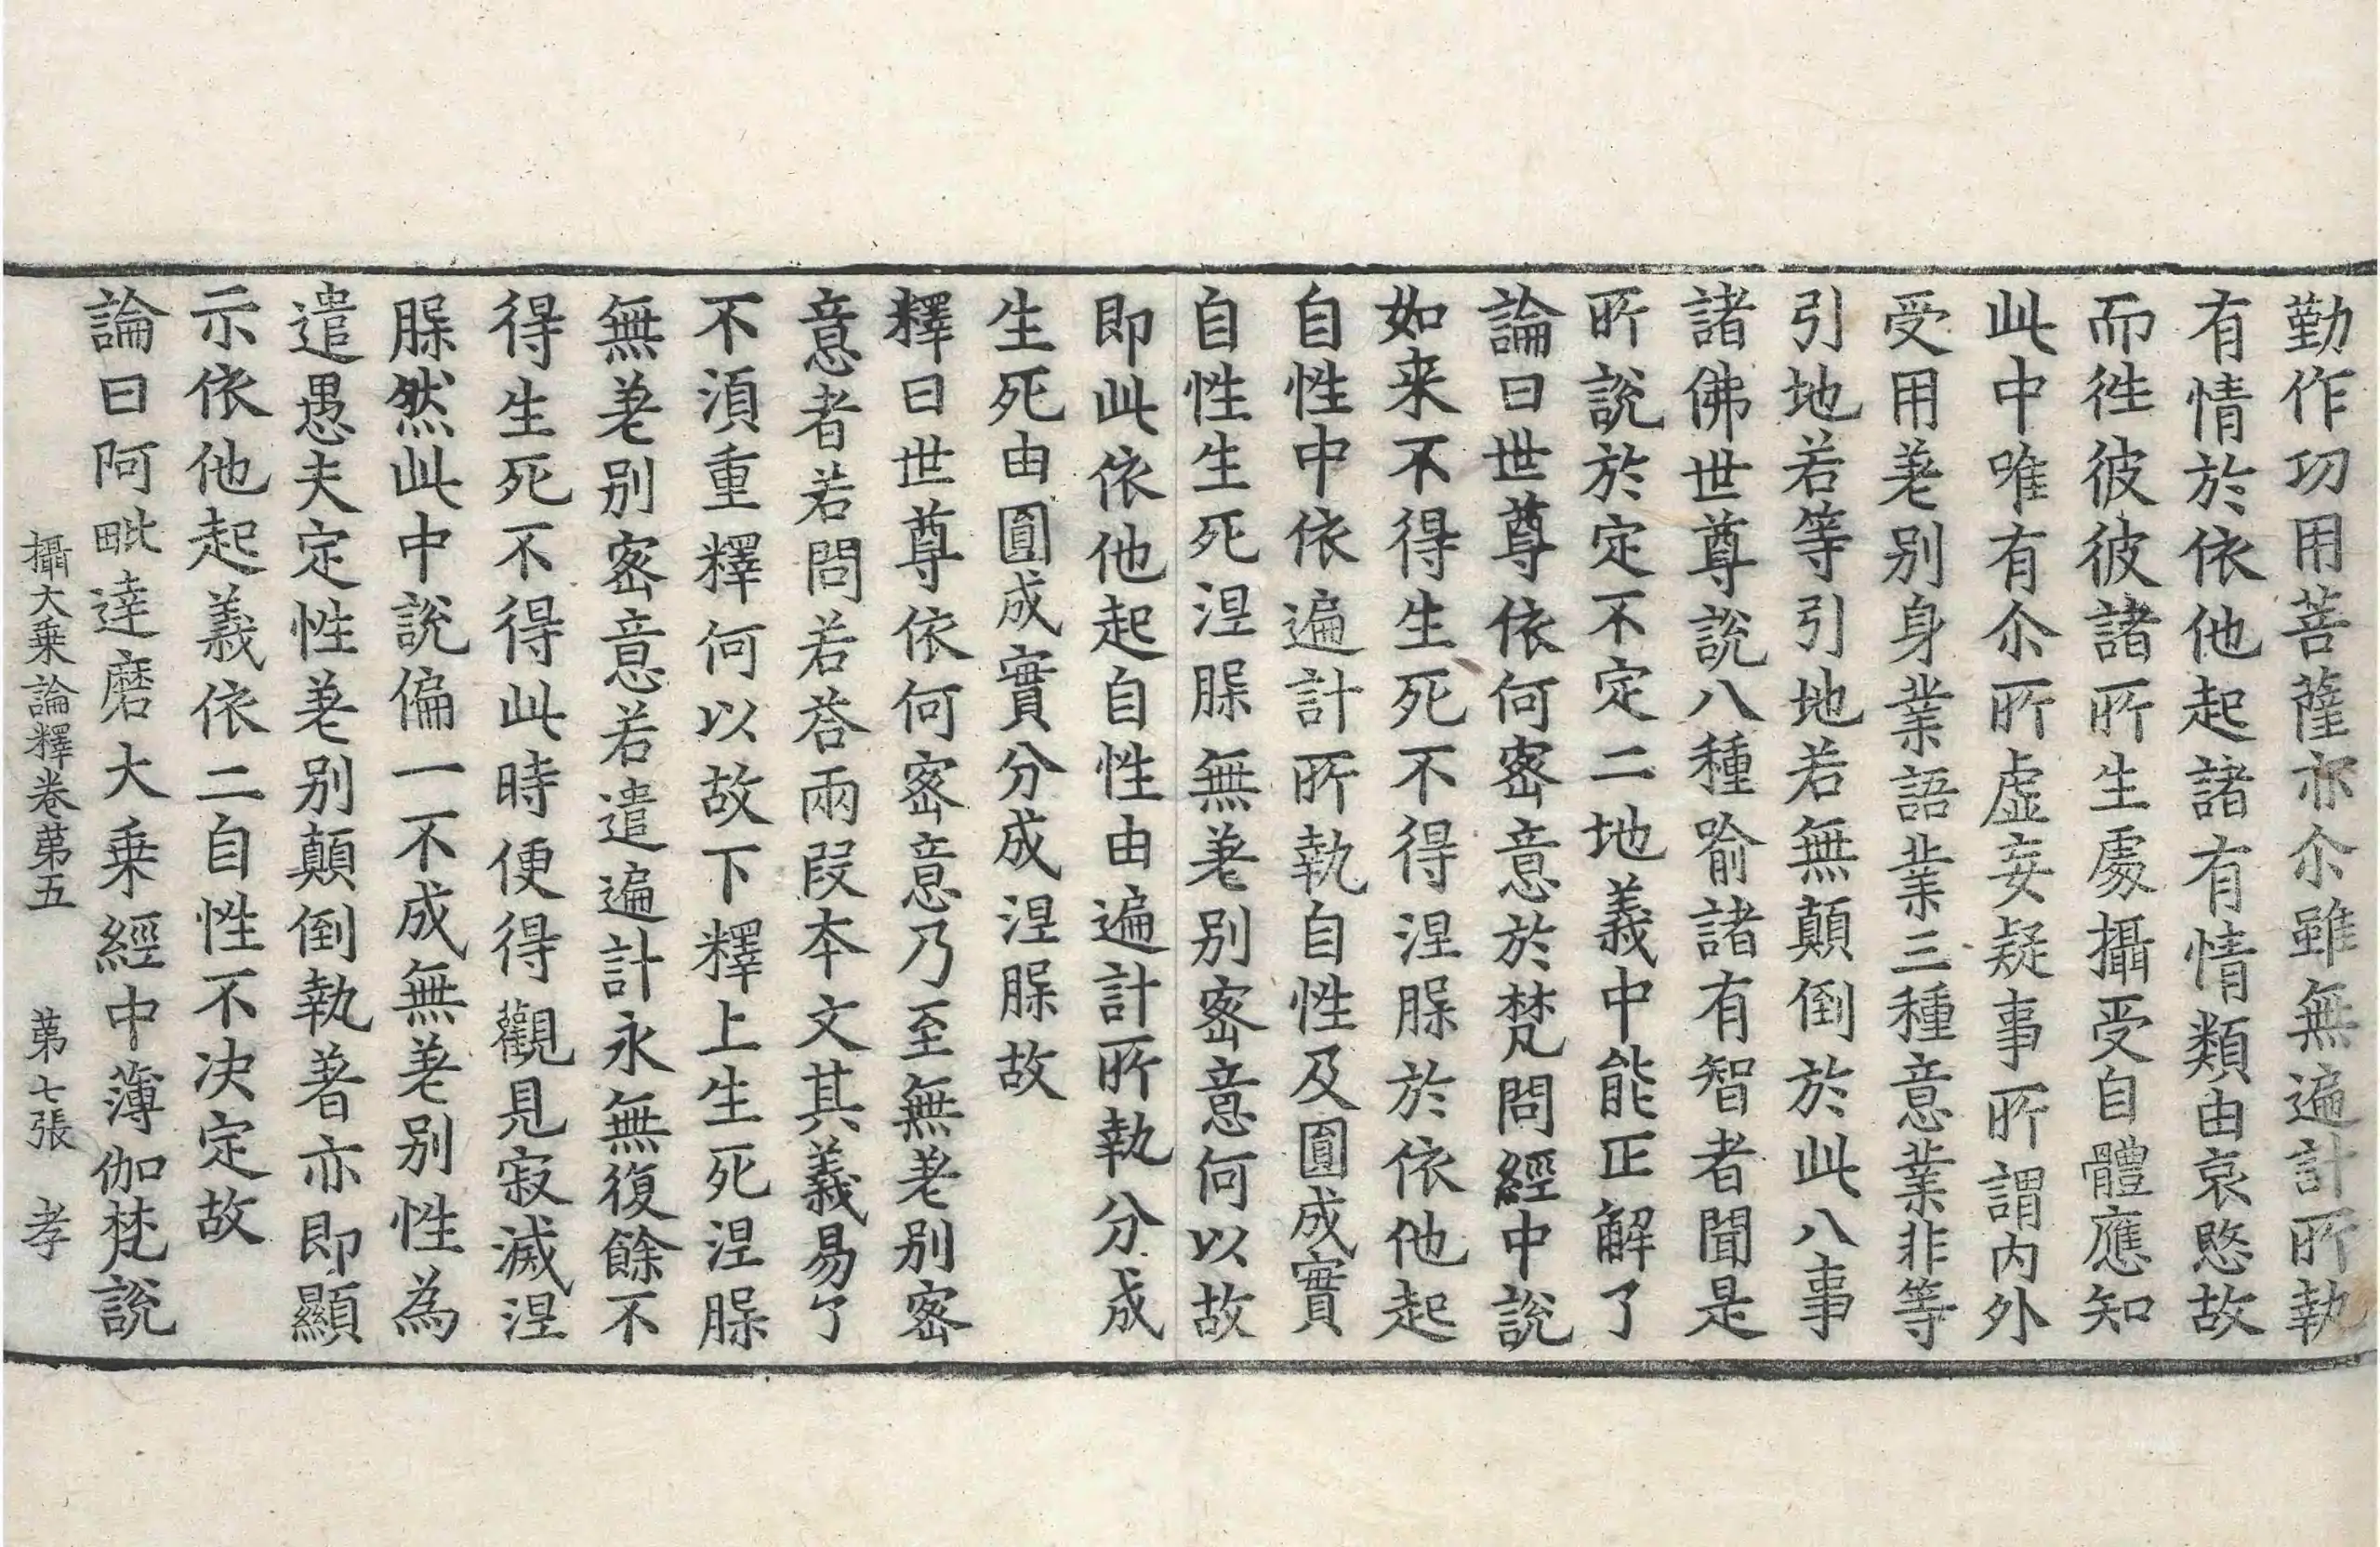 勤作功用菩薩亦尒雖無遍計所執
有情於依他起諸有情類由哀愍故
而徃彼彼諸所生處攝受自體應知
此中唯有尒所虛妄疑事所謂内外
受用差别身業語業三種意業非等
引地若等引地若無顛倒於此八事
諸佛世尊說八種喻諸有智者聞是
所說於定不定二地義中能正解了
論曰世尊依何密意於梵問經中說
如来不得生死不得涅槃於依他起
自性中依遍計所執自性及圓成實
自性生死涅槃無差别密意何以故
即此依他起自性由遍計所執分成
生死由圓成實分成涅槃故
釋曰世尊依何密意乃至無差别密
意者若問若荅兩段本文其義易了
不湏重釋何以故下釋上生死涅槃
無差别密意若遣遍計永無復餘不
得生死不得此時便得觀見寂滅涅
槃然此中說偏一不成無差别性為
遣愚夫定性差别顛倒執著亦即顯
示依他起義依二自性不决定故
論曰阿毗達磨大乗經中薄伽梵說
攝大乗論釋卷第五　第七張　孝